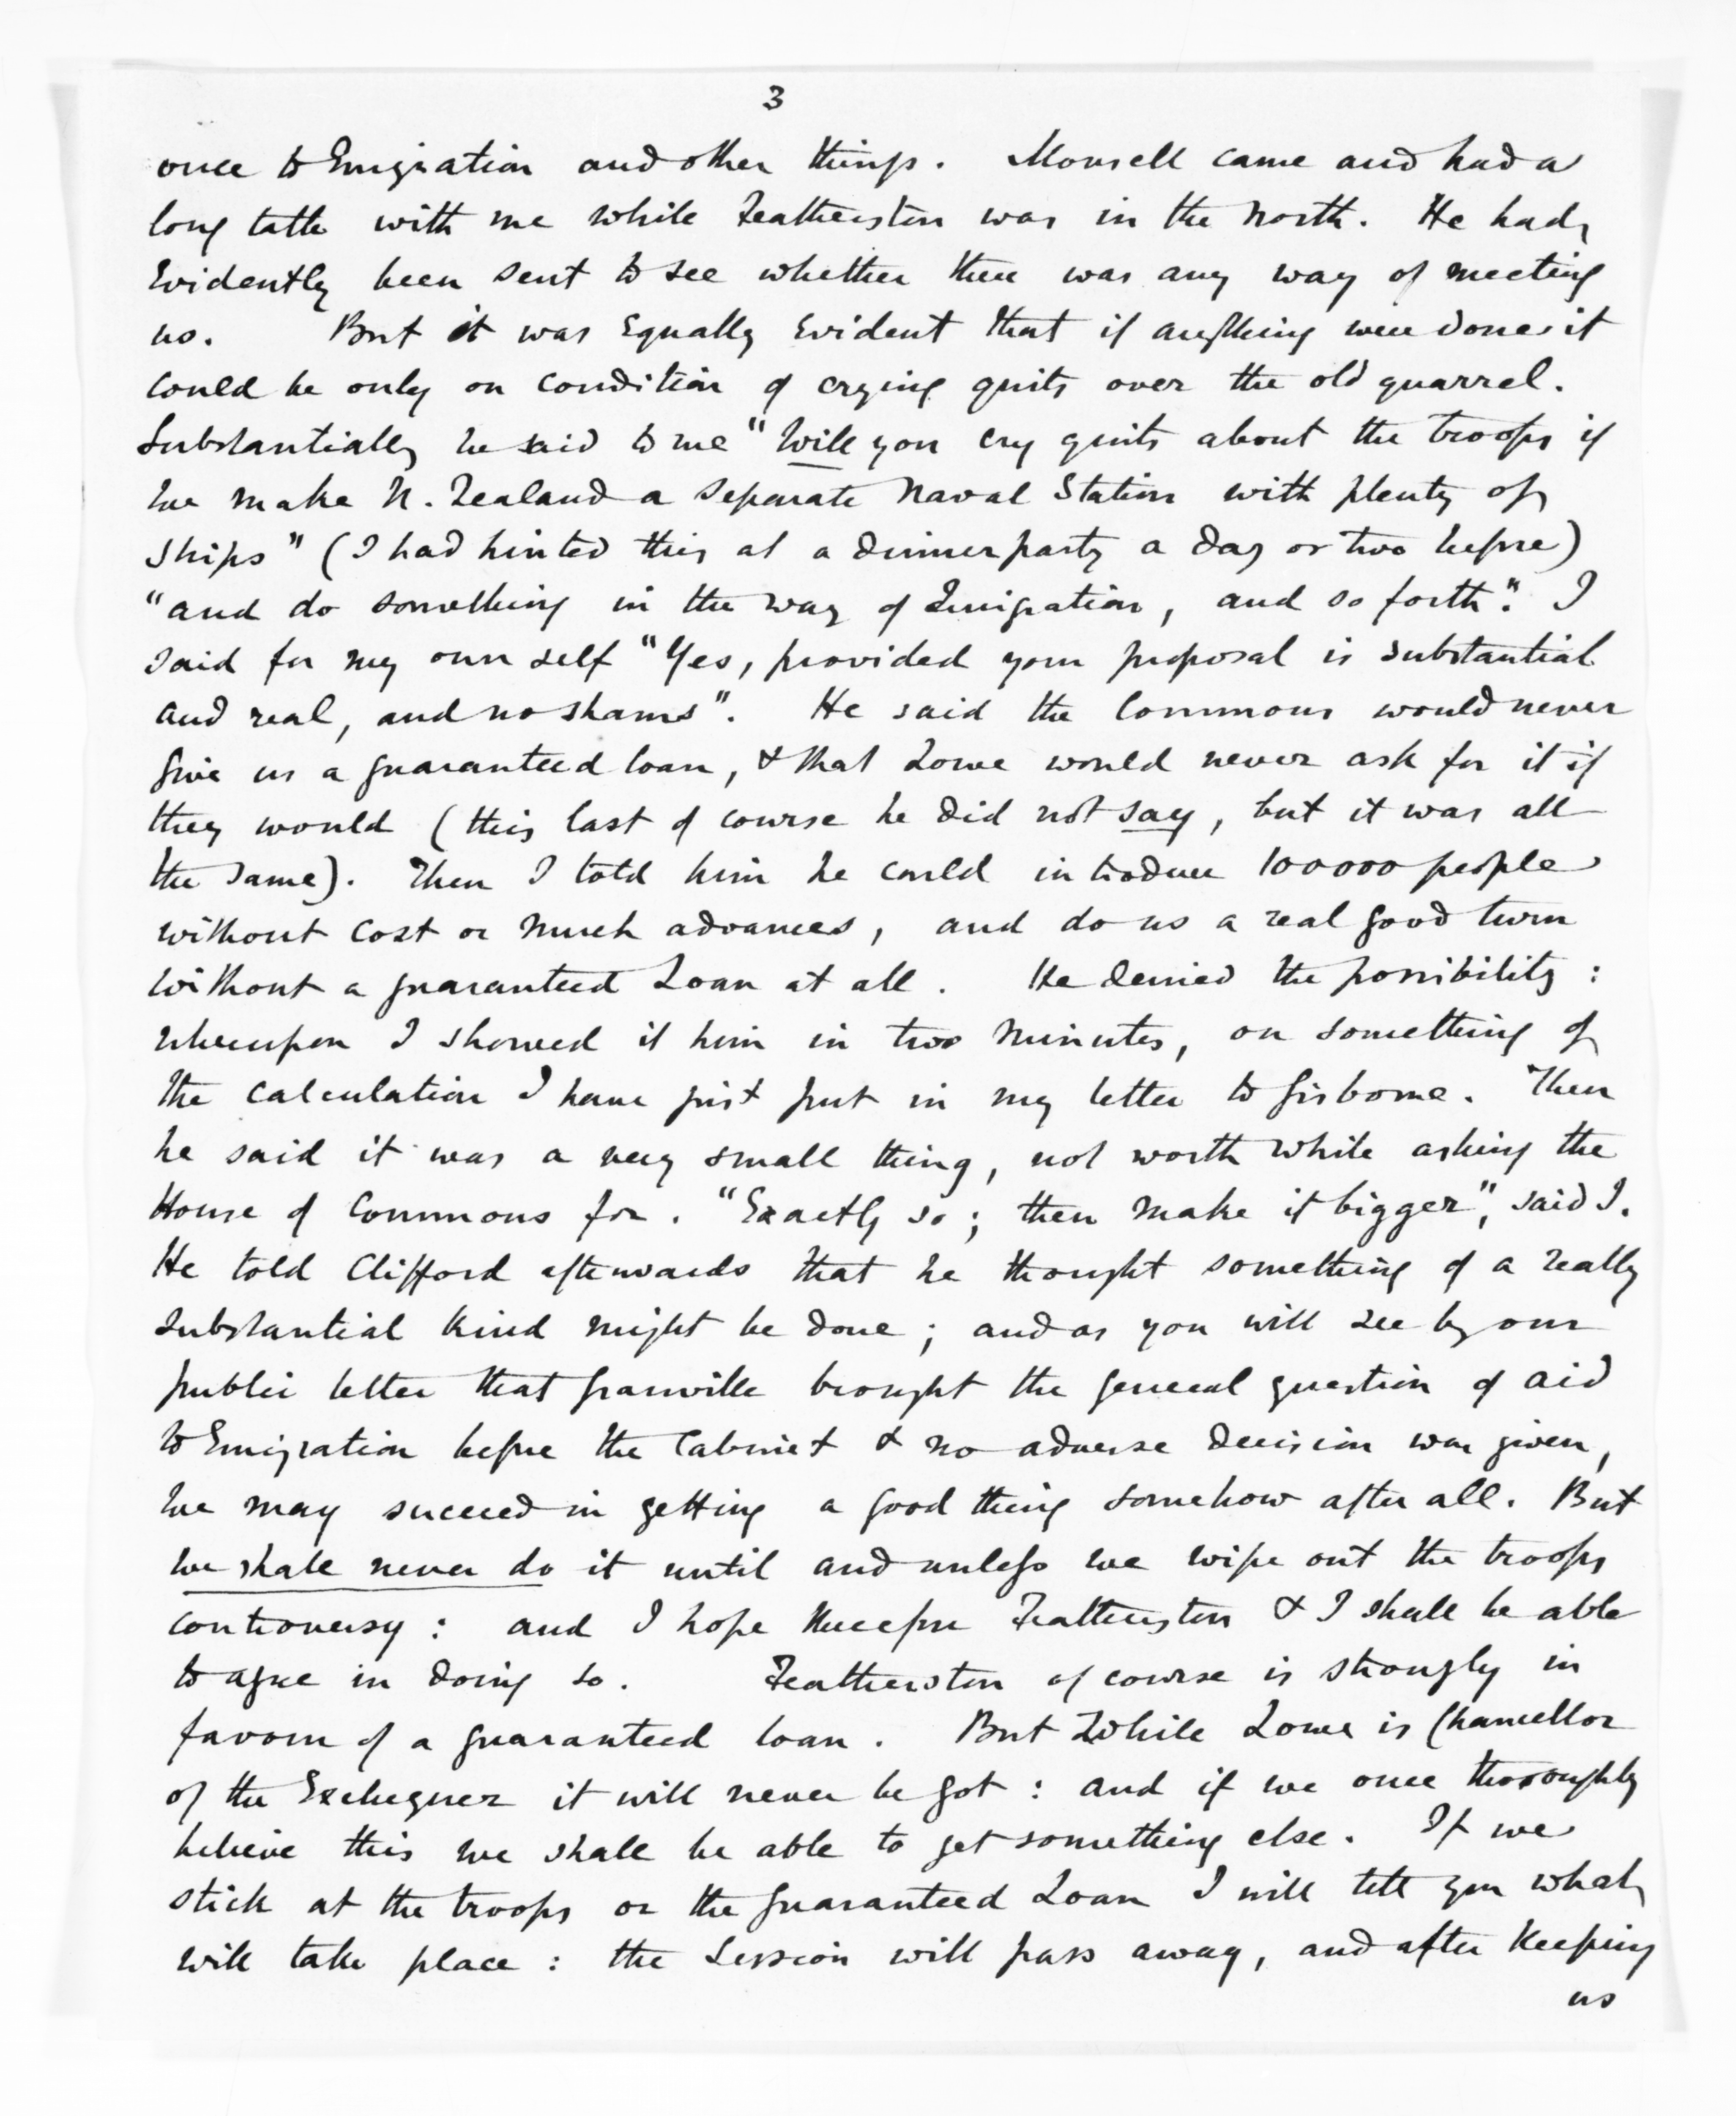 3
once to Emigration and other things. Monsell came and had a
long talk with me while Featherston was in the North. He had
evidently been sent to see whether there was any way of meeting
us. But it was equally evident that if anything were done it
could be only on condition of crying quits over the old quarrel.
Substantially he said to me "Will you cry quits about the troops if
we make N. Zealand a separate Naval Station with plenty of
ships" (I had hinted this at a dinner party a day or two before)
"and do something in the way of Emigration, and so forth". I
said for my own self "Yes, provided your proposal is substantial
and real, and no shams". He said the Commons would never
give us a guaranteed loan, & that Lowe would never ask for it if
they would (this last of course he did not say, but it was all
the same). Then I told him he could introduce 100000 people
without cost or much advances, and do us a real good turn
without a guaranteed Loan at all. He denied the possibility:
whereupon I showed it him in two minutes, on something of
the calculation I have just put in my letter to Gisborne. Then
he said it was a very small thing, not worth while asking the
House of Commons for. "Exactly so; then make it bigger", said I.
He told Clifford afterwards that he thought something of a really
substantial kind might be done; and as you will see by our
public letter that Granville brought the general question of aid
to Emigration before the Cabinet & no adverse decision was given,
we may succeed in getting a good thing somehow after all. But
we shall never do it until and unless we wipe out the troops
controversy: and I hope therefore Featherston & I shall be able
to agree in doing so. Featherston of course is strongly in
favour of a guaranteed loan. But while Lowe is Chancellor
of the Exchequer it will never be got: and if we once thoroughly
believe this we shall be able to get something else. If we
stick at the troops or the guaranteed Loan I will tell you what
will take place: the Session will pass away, and after keeping
us